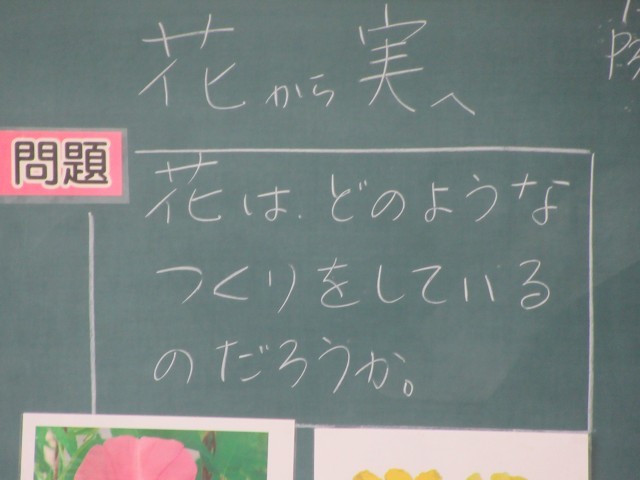 花から実へ
問題
花は、どのような
つくりをしている
のだろうか。